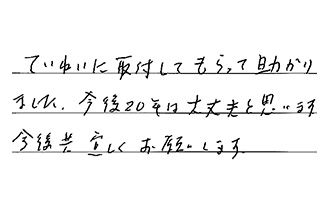 ていねいに取付してもらって助かり
ました。今後20年は大丈夫と思います
今後共宜しくお願いします